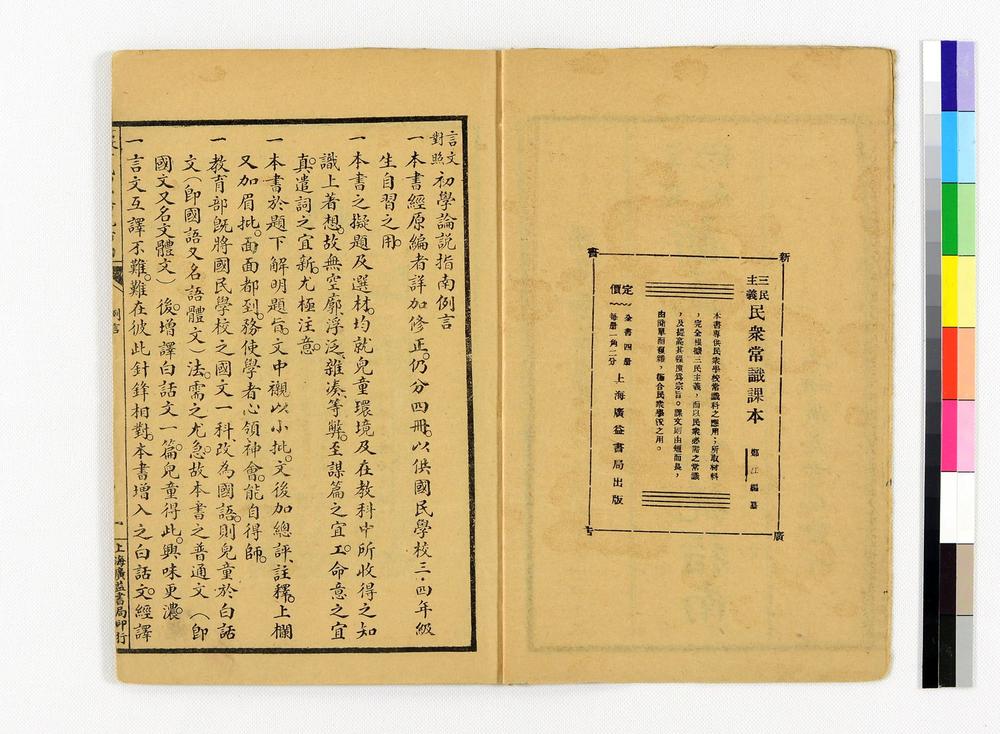 新書廣告
三民主義民衆常識課本
鄭江編纂
本書專供民衆學校常識科之應用；所取材料
，完全根據三民主義，而以民衆必需之常識
，及提高其程度爲宗旨。課文則由短而長，
由簡單而複雜，備合民衆學校之用。
定價
全書四册
每册一角二分
上海廣益書局出版
言文對照初學論説指南例言
一本書經原編者詳加修正。仍分四冊。以供國民學校三·四年級
生自習之用。
一本書之擬題及選材。均就兒童環境及在教科中所收得之知
識上著想。故無空廓浮泛、雜湊、等弊。至謀篇之宜工。命意之宜
真。遣詞之宜新。尤極注意。
一本書於題下解明題旨。文中襯以小批。文後加總評、註釋。上欄
又加眉批。面面都到。務使學者心領神會。能自得師。
一教育部旣將國民學校之國文一科。改為國語。則兒童於白話
文（卽國語又名語體文）法。需之尤急。故本書之普通文（卽
國文又名文體文）後。增譯白話文一篇。兒童得此。興味更濃。
一言文互譯不難。難在彼此針鋒相對。本書增入之白話文。經譯
例言
一
上海廣益書局印行